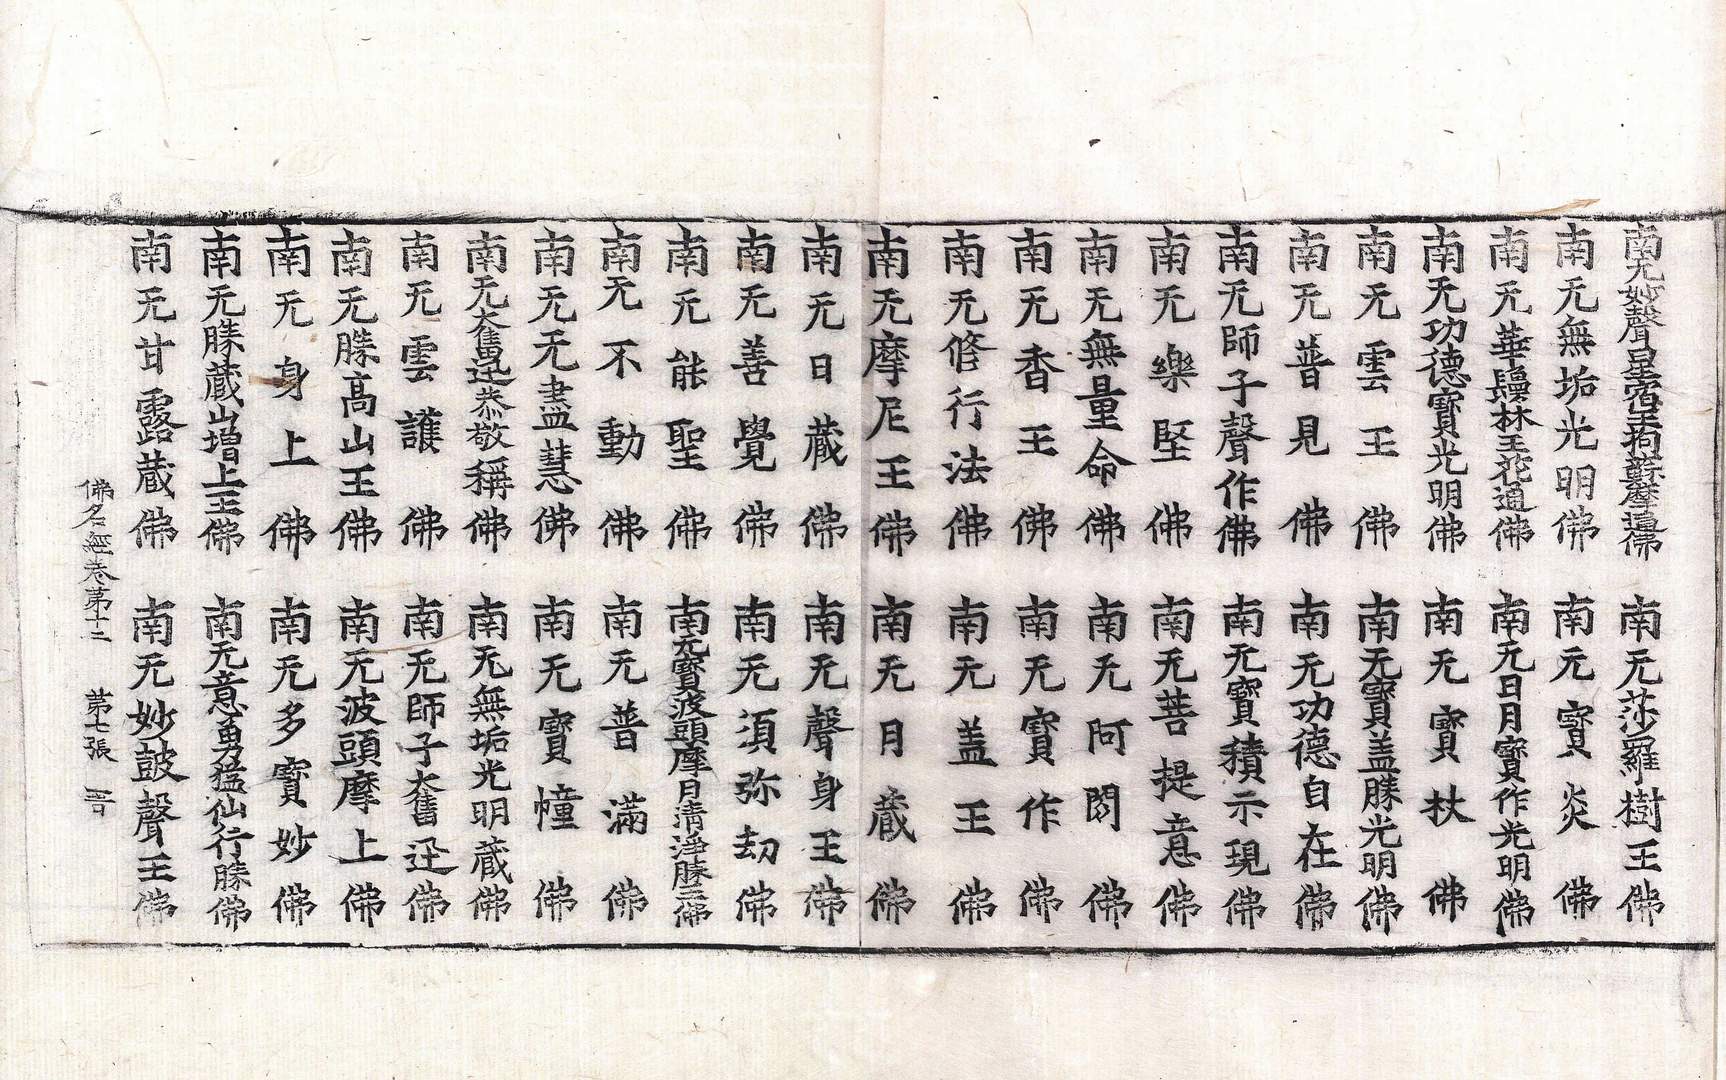 南无妙聲星宿王拘蘇摩通佛 南无莎羅樹王佛
南无無垢光明佛 南无寶炎佛
南无華鬘林王花通佛 南无日月寶作光明佛
南无功德寶光明佛 南无寶杖佛
南无雲王佛 南无寶盖勝光明佛
南无普見佛 南无功德自在佛
南无師子聲作佛 南无寶積示現佛
南无樂堅佛 南无菩提意佛
南无無量命佛 南无阿閦佛
南无香王佛 南无寶作佛
南无修行法佛 南无盖王佛
南无摩尼王佛 南无月藏佛
南无日藏佛 南无聲身王佛
南无善覺佛 南无須弥劫佛
南无能聖佛 南无寶波頭摩日清淨勝王佛
南无不動佛 南无普滿佛
南无无盡慧佛 南无寶幢佛
南无大奮迅恭敬稱佛 南无無垢光明藏佛
南无雲護佛 南无師子大奮迅佛
南无勝高山王佛 南无波頭摩上佛
南无身上佛 南无多寶妙佛
南无勝藏山增上王佛 南无意勇猛仙行勝佛
南无甘露藏佛 南无妙鼓聲王佛
佛名經卷第十二 第七張